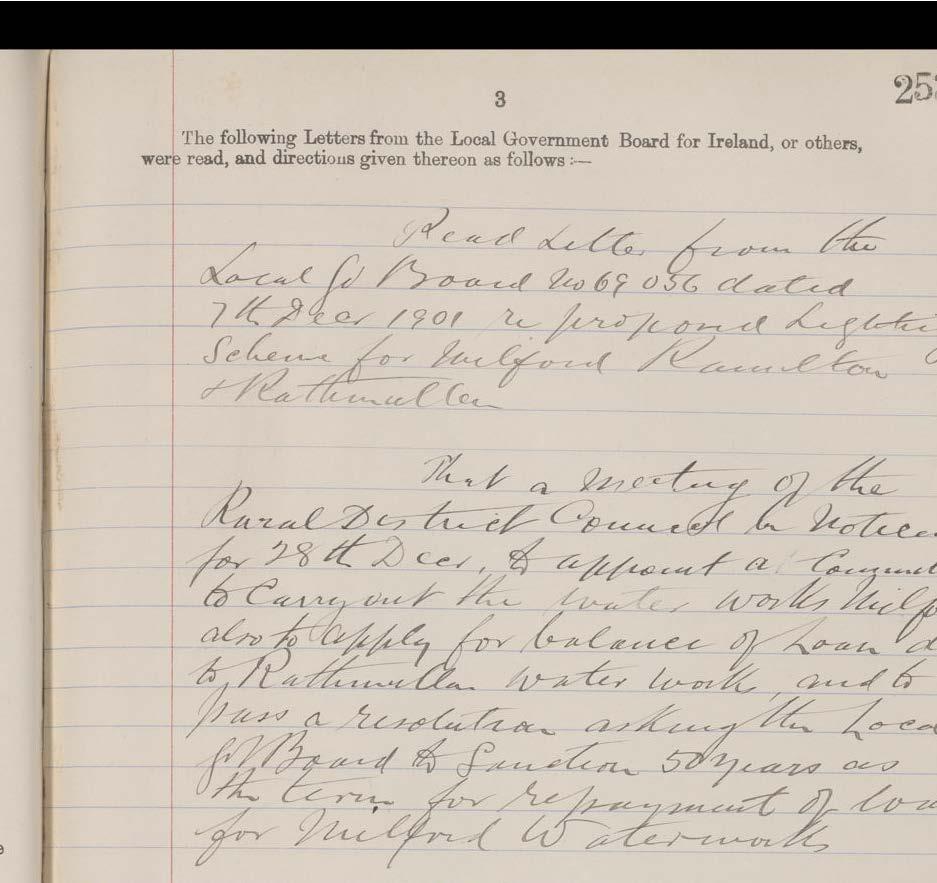 3
253
The following Letters from the Local Government Board for Ireland, or others,
were read, and directions given thereon as follows :—
Read Letter from the
Local Gt Board No 69 056 dated
7th Decr 1901 re proposed Lighti
Scheme for Milford Ramelton
& Rathmullen
That a meeting of the
Rural District Council be Notice
for 28th Decr, to appoint a Commit
to Carry out the water works Milfo
also to apply for balance of Loan d
to Rathmullen water works, and to
pass a resolution asking the Loca
Gt Board to Sanction 50 years as
the term for repayment of loa
for Milford Waterworks